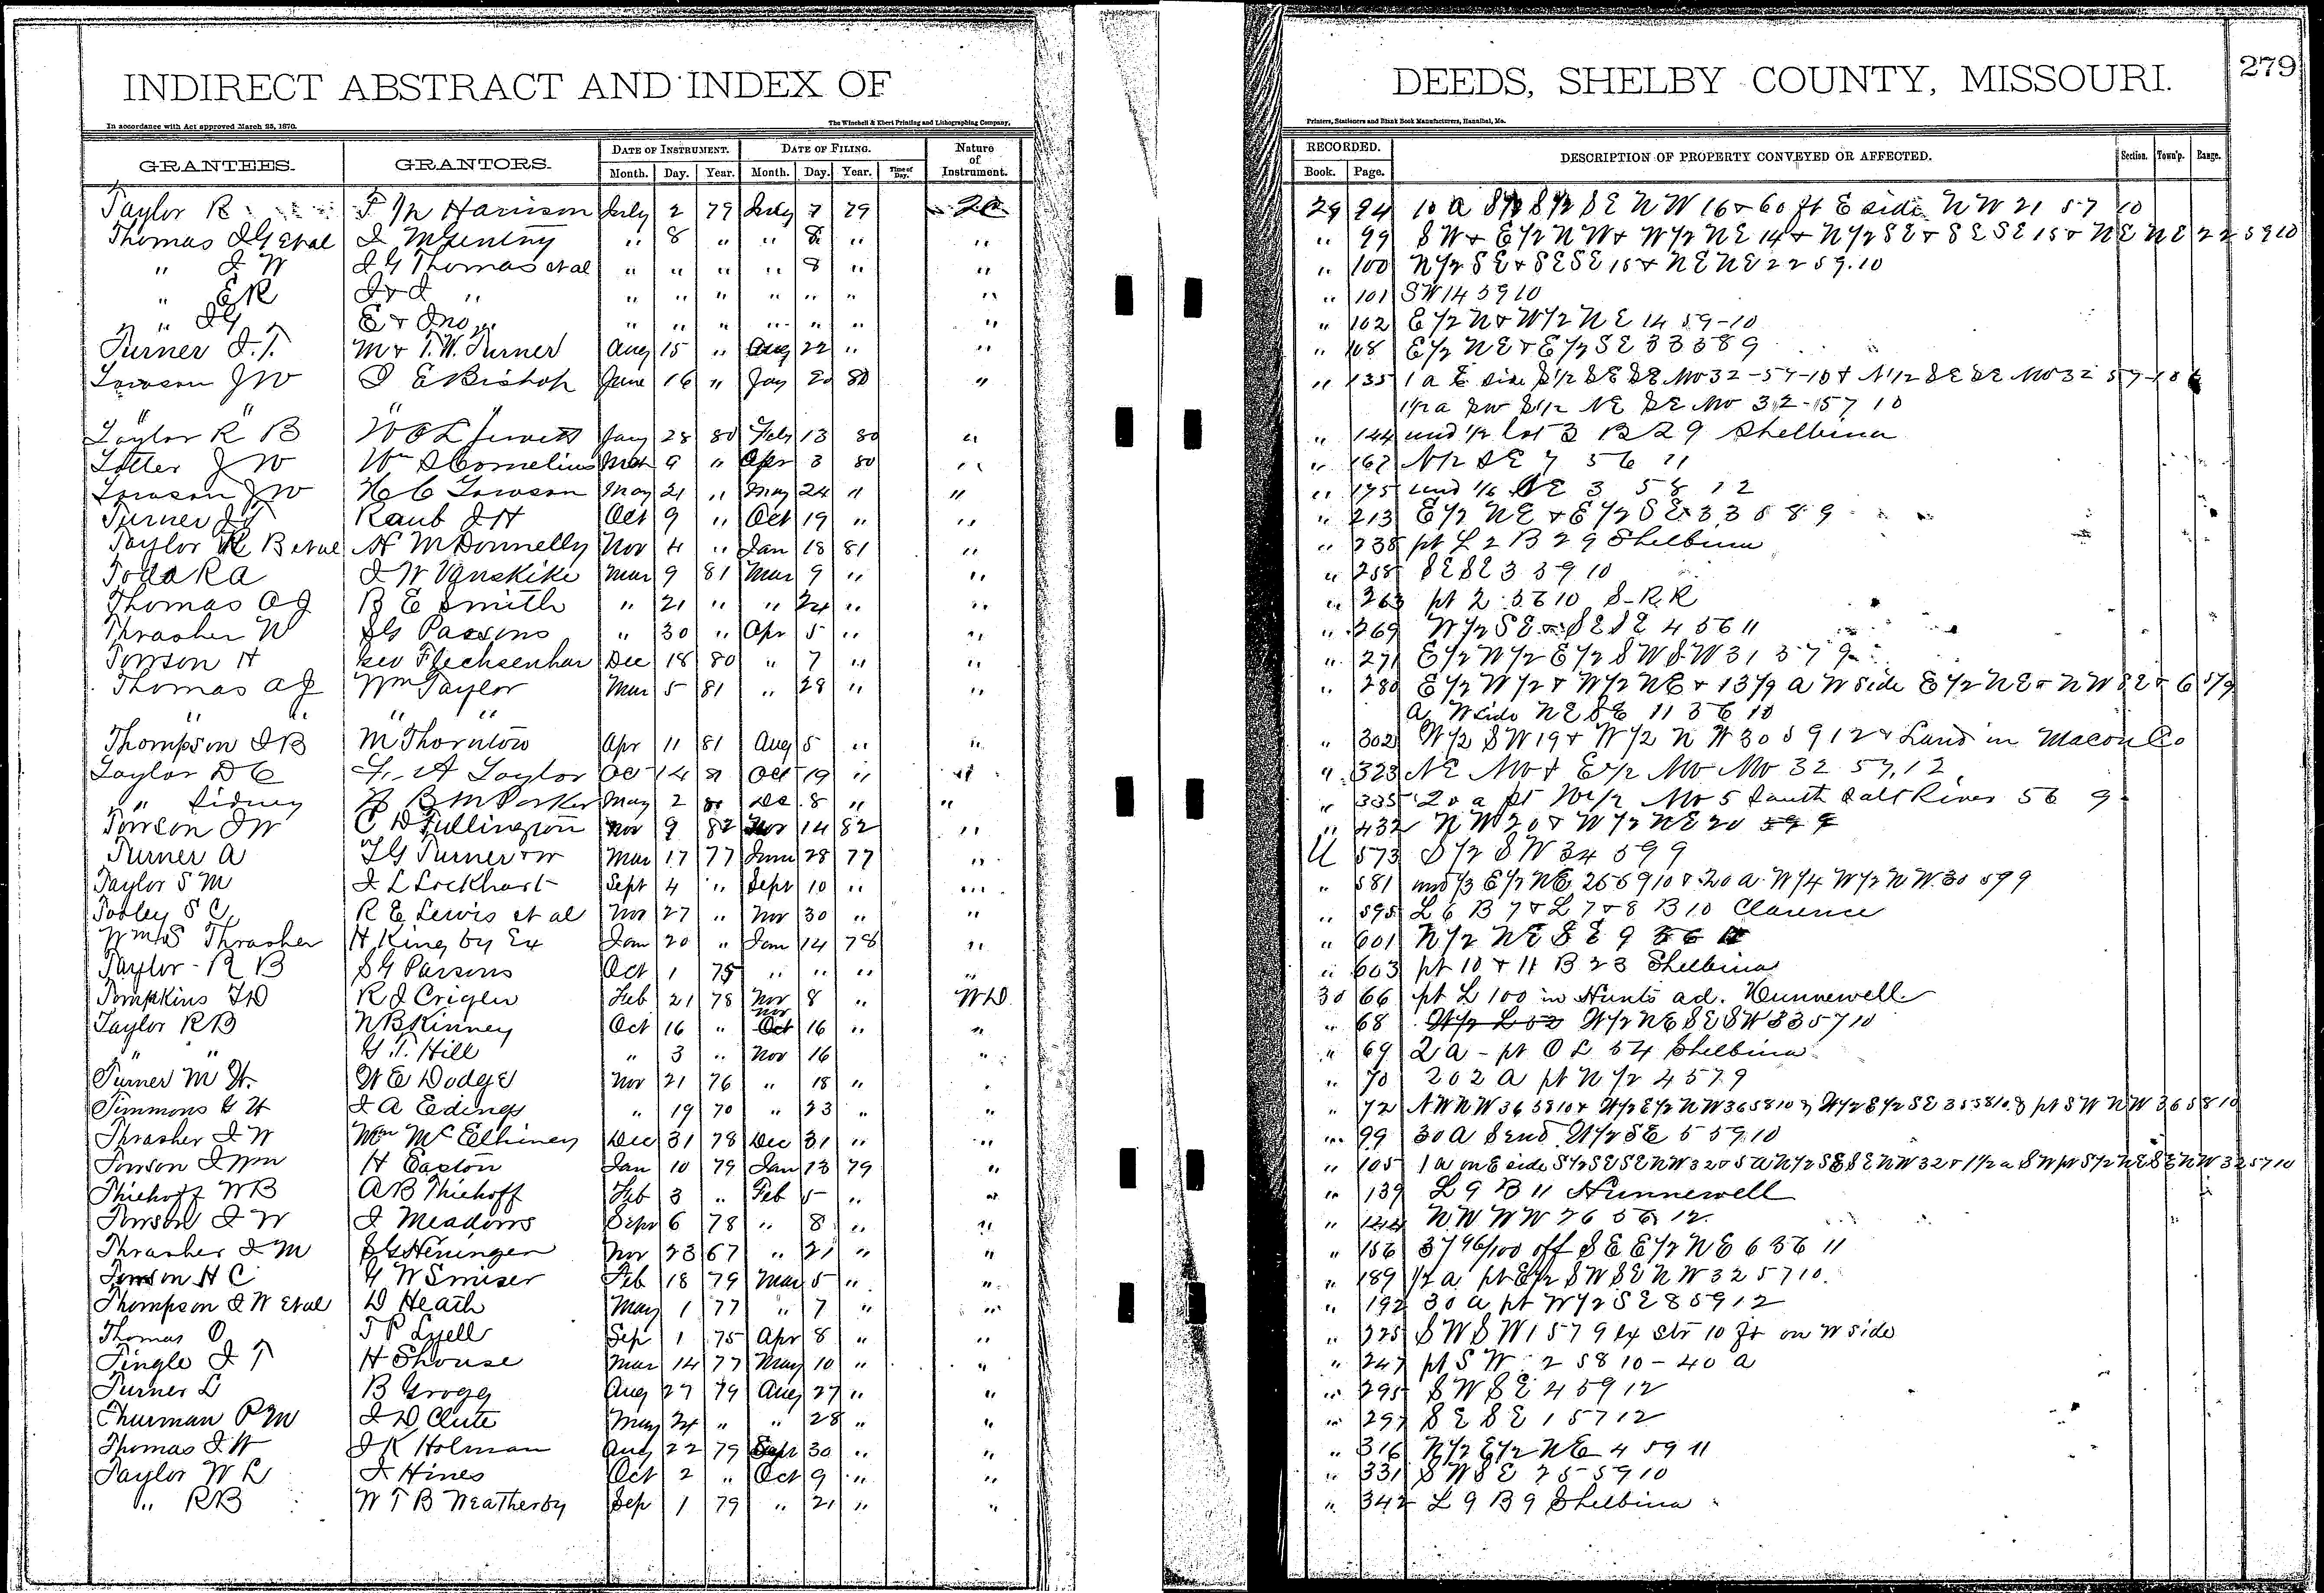 INDIRECT ABSTRACT AND INDEX OF
DEEDS, SHELBY COUNTY, MISSOURI.
279
In accordance with Act approved March 25, 1870.
The Winchell & Ebert Printing and Lithographing Company,
Printers, Stationers and Blank Book Manufacturers, Hannibal, Mo.
GRANTEES. GRANTORS. DATE OF INSTRUMENT. DATE OF FILING. Nature of Instrument. RECORDED. DESCRIPTION OF PROPERTY CONVEYED OR AFFECTED. Section. Town'p. Range.
Month. Day. Year. Month. Day. Year. Time of Day. Book. Page.
Taylor R Harrison July 2 79 July 7 79 29 94 10 a S½ S½ SE NW 16 & 60 ft E side NW 21 57 10
Thomas J G et al J McGentry " 8 " " 8 " " " 99 SW & E½ NW & W½ NE 14 & N½ SE & SE SE 15 & NE NE 22 59 10
" J W J G Thomas et al " " " " 8 " " " 100 N½ SE & SE SE 15 & NE NE 22 59.10
" E R J & J " " " " " " " " " 101 SW 14 59 10
" J G E & Jno " " " " " " " " " 102 E½ N & W½ NE 14 59-10
Turner J. T. M & T. W. Turner Aug 15 " Aug 22 " " " 108 E½ NE & E½ SE 33 58 9
Towson J W J E Bishop June 16 " Jay 20 80 " " 135 1 a E side S½ SE SE NW 32-57-10 & N½ SE SE NW 32 57-10 &
" " " " 1½ a SW S½ NE SE NW 32-57 10
Taylor R B W O L Jewett Jany 28 80 Feby 13 80 " " 144 und ½ lot 3 B 29 Shelbina
Totter J W Wm S Cornelius Mch 9 " Apr 3 80 " " 167 N½ SE 7 56 11
Towson J W H C Towson May 21 " May 24 " " " 175 und 1/6 NE 3 58 12
Turner J T Raub J H Oct 9 " Oct 19 " " " 213 E½ NE & E½ SE 33 58 9
Taylor R B et al N McDonnelly Nov 4 " Jan 18 81 " " 238 pt L 2 B 29 Shelbina
Todd R A J W Vanskike Mar 9 81 Mar 9 " " " 258 SE SE 3 59 10
Thomas A J B E Smith " 21 " " 24 " " " 263 pt 2 56 10 S-R.R
Thrasher W S G Parsons " 30 " Apr 5 " " " 269 W½ SE & SE SE 4 56 11
Towson H Geo Flechsenhar Dec 18 80 " 7 " " " 271 E½ N½ E½ SW SW 31 57 9
Thomas A J Wm Taylor Mar 5 81 " 28 " " " 280 E½ W½ & W½ NE & 13 1/9 A W side E½ NE & NW SE & 6 5/9
" " " " a W side NE SE 11 56 10
Thompson J B M Thornton Apr 11 81 Aug 5 " " " 302 W½ SW 19 & W½ NW 30 59 12 & Land in Macon Co
Taylor D C A Taylor Oct 14 81 Oct 19 " " " 323 NE NW & E½ NW NW 32 57, 12
" Sidney B M Parker May 2 80 Dec 8 " " " 335 20 a pt W½ NW 5 South Salt River 56 9
Towson J W C D Fullington Nov 9 82 Nov 14 82 " " 432 NW 20 & W½ NE 20 59 9
Turner A T G Turner & w Mar 17 77 June 28 77 " U 573 S½ SW 34 59 9
Taylor S M J L Lockhart Sept 4 " Sept 10 " " " 581 und ⅓ E½ NE 25 59 10 & 20 a W¼ W½ NW 30 59 9
Tooley S C R E Lewis et al Nov 27 " Nov 30 " " " 595 L 6 B 7 & L 7 & 8 B 10 Clarence
Wm S Thrasher H King by Ex Jan 20 " Jan 14 78 " " 601 N½ NE SE 9 56
Taylor R B S G Parsons Oct 1 75 " " " " " 603 pt 10 & 11 B 23 Shelbina
Tompkins T D R J Crigler Feb 21 78 Nov 8 " WD 30 66 pt L 100 in Hunts ad. Hunnewell
Taylor R B N B Kinney Oct 16 " Nov 16 " " " 68 W½ NE SE SW 33 57 10
" " G. T. Hill " 3 " Nov 16 " " 69 2 a - pt O L 54 Shelbina
Turner M H. W E Dodge Nov 21 76 " 18 " " " 70 202 A pt N½ 4 57 9
Timmons G H J A Edings " 19 70 " 23 " " " 72 NW NW 36 58 10 & W½ E½ NW 36 58 10 & W½ E½ SE 35 58 10 & pt SW NW 36 58 10
Thrasher J W Wm McElhiney Dec 31 78 Dec 31 " " " 99 30 A S end W½ SE 5 59 10
Towson J Wm H Easton Jan 10 79 Jan 13 79 " " 105 1 a on E side S½ SE SE NW 32 & 5 a N½ SE SE NW 32 & 1½ a SW pt S½ NE SE NW 32 57 10
Thiehoff W B A B Thiehoff Feb 3 " Feb 5 " " " 139 L 9 B 11 Hunnewell
Towson J W J Meadows Sepr 6 78 " 8 " " " 144 NW NW 26 56 12
Thrasher J M S G Heninger Nov 23 67 " 21 " " " 156 37 96/100 off SE E½ NE 6 56 11
Towson H C G W Smiser Feb 18 79 Mar 5 " " " 189 ½ a pt E½ SW SE NW 32 57 10.
Thompson J W et al D Heath May 1 77 " 7 " " " 192 30 a pt W½ SE 8 59 12
Thomas O T P Lyell Sep 1 75 Apr 8 " " " 225 SW SW 1 57 9 ex str 10 ft on W side
Tingle J T H Shouse Mar 14 77 May 10 " " " 247 pt SW 2 58 10 - 40 a
Turner L B Grogg Aug 27 79 Aug 27 " " " 295 SW SE 4 59 12
Thurman P M J D Clute May 24 " " 28 " " " 297 SE SE 1 57 12
Thomas J. W J K Holman Aug 22 79 Sept 30 " " " 316 N½ E½ NE 4 59 11
Taylor W L J Hines Oct 2 " Oct 9 " " " 331 SW SE 25 59 10
" R B W T B Weatherby Sep 1 79 " 21 " " " 342 L 9 B 9 Shelbina